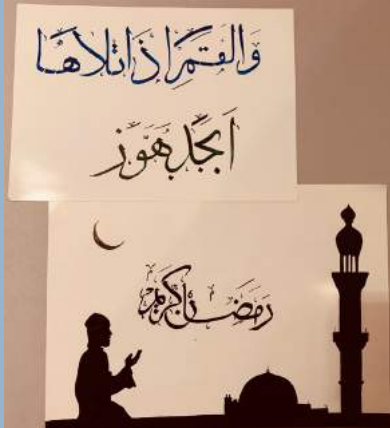 وَالقَمَرِ اذَا تَلَاهَا
اَبْجَدْ هَوَّزْ
رَمَضَان كَرِيم